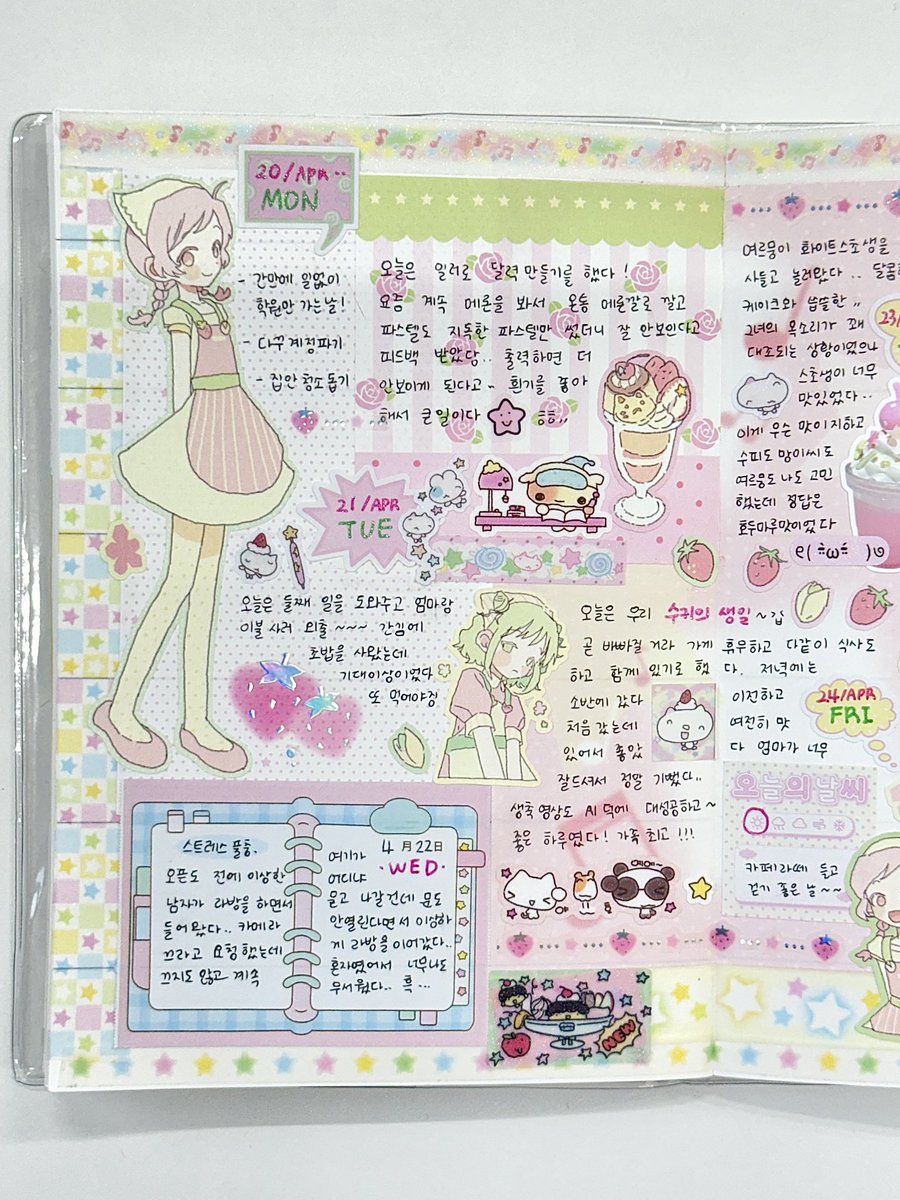 20/APR..
MON
- 간만에 일없이
학원만 가는날!
- 다꾸 계정파기
- 집안 청소 돕기
오늘은 일러로 달력 만들기를 했다!
요즘 계속 메론을 봐서 온통 메론깔로 깔고
파스텔도 지독한 파스텔만 썼더니 잘 안보인다고
피드백 받았담.. 출력하면 더
안보이게 된다고~ 흰기를 좋아
해서 큰일이다 흠흠,,
21/APR
TUE
오늘은 둘째 일을 도와주고 엄마랑
이불 사러 외출~~~ 간김에
초밥을 사왔는데
기대이상이었다
또 먹어야징
스트레스 풀충.
오픈도 전에 이상한
남자가 라방을 하면서
들어왔다.. 카메라
끄라고 요청했는데
끄지도 않고 계속
4月22日
·WED·
여기가
어디냐
묻고 나갈건데 문도
안열린다면서 이상하
게 라방을 이어갔다..
혼자였어서 너무나도
무서웠다.. 흑...
여르뭉이 화이트스초생을
사들고 놀러왔다.. 달콤한
케이크와 씁쓸한,,
그녀의 목소리가 꽤
대조되는 상황이었으나
스초생이 너무
맛있었다..
이게 우슨 맛이지하고
수피도 망이씨도
여르뭉도 나도 고민
했는데 정답은
호두마루맛이었다
23/
오늘은 우리 수귀의 생일~
곧 바빠질 거라 가게 휴무하고 다같이 식사도
하고 함께 있기로 했다. 저녁에는
소반에 갔다 이전하고
처음 갔는데 여전히 맛
있어서 좋았다 엄마가 너무
잘드셔서 정말 기뻤다..
생축 영상도 AI 덕에 대성공하고~
좋은 하루였다! 가족 최고!!!
24/APR
FRI
오늘의 날씨
카페라떼 들고
걷기 좋은 날~~
NEW